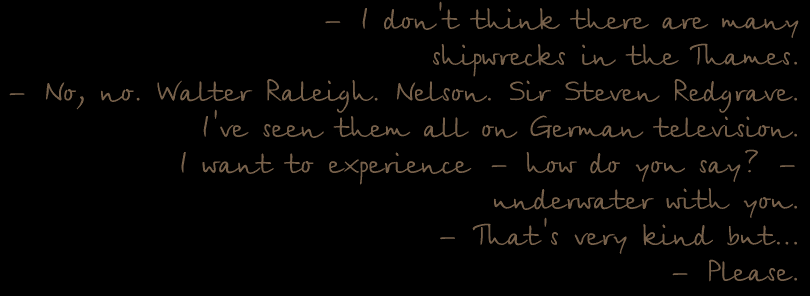 – I don't think there are many
shipwrecks in the Thames.
– No, no. Walter Raleigh. Nelson. Sir Steven Redgrave.
I've seen them all on German television.
I want to experience – how do you say? –
underwater with you.
– That's very kind but...
– Please.